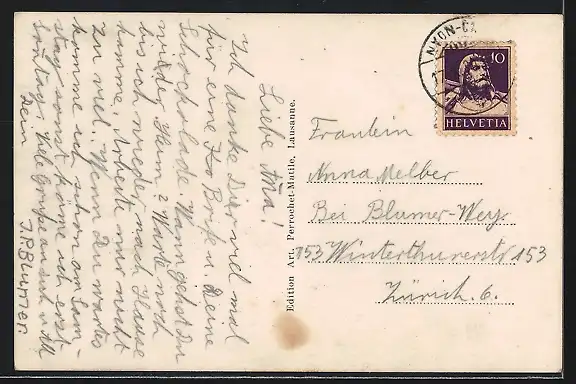 Liebe Ana!
Ich danke Dir viel mal
für eine Brife u. Deine
Schockolade. Wann gehst Du
wieder Heim? Warte noch
bis ich wieder nach Hause
komme. Arbeite nur nicht
zu viel. Wenn Du wartes
komme ich schon am Sam-
stag sonst köme ich erst
Sontag. Viele Grüsse an dich und
Dein J.P. Blumer.
Edition Art. Perrochet-Matile, Lausanne.
NYON-
10
HELVETIA
Fraulein
Anna Melber
Bei Blumer-Wey.
153 Winterthurerstr 153
Zürich. 6.